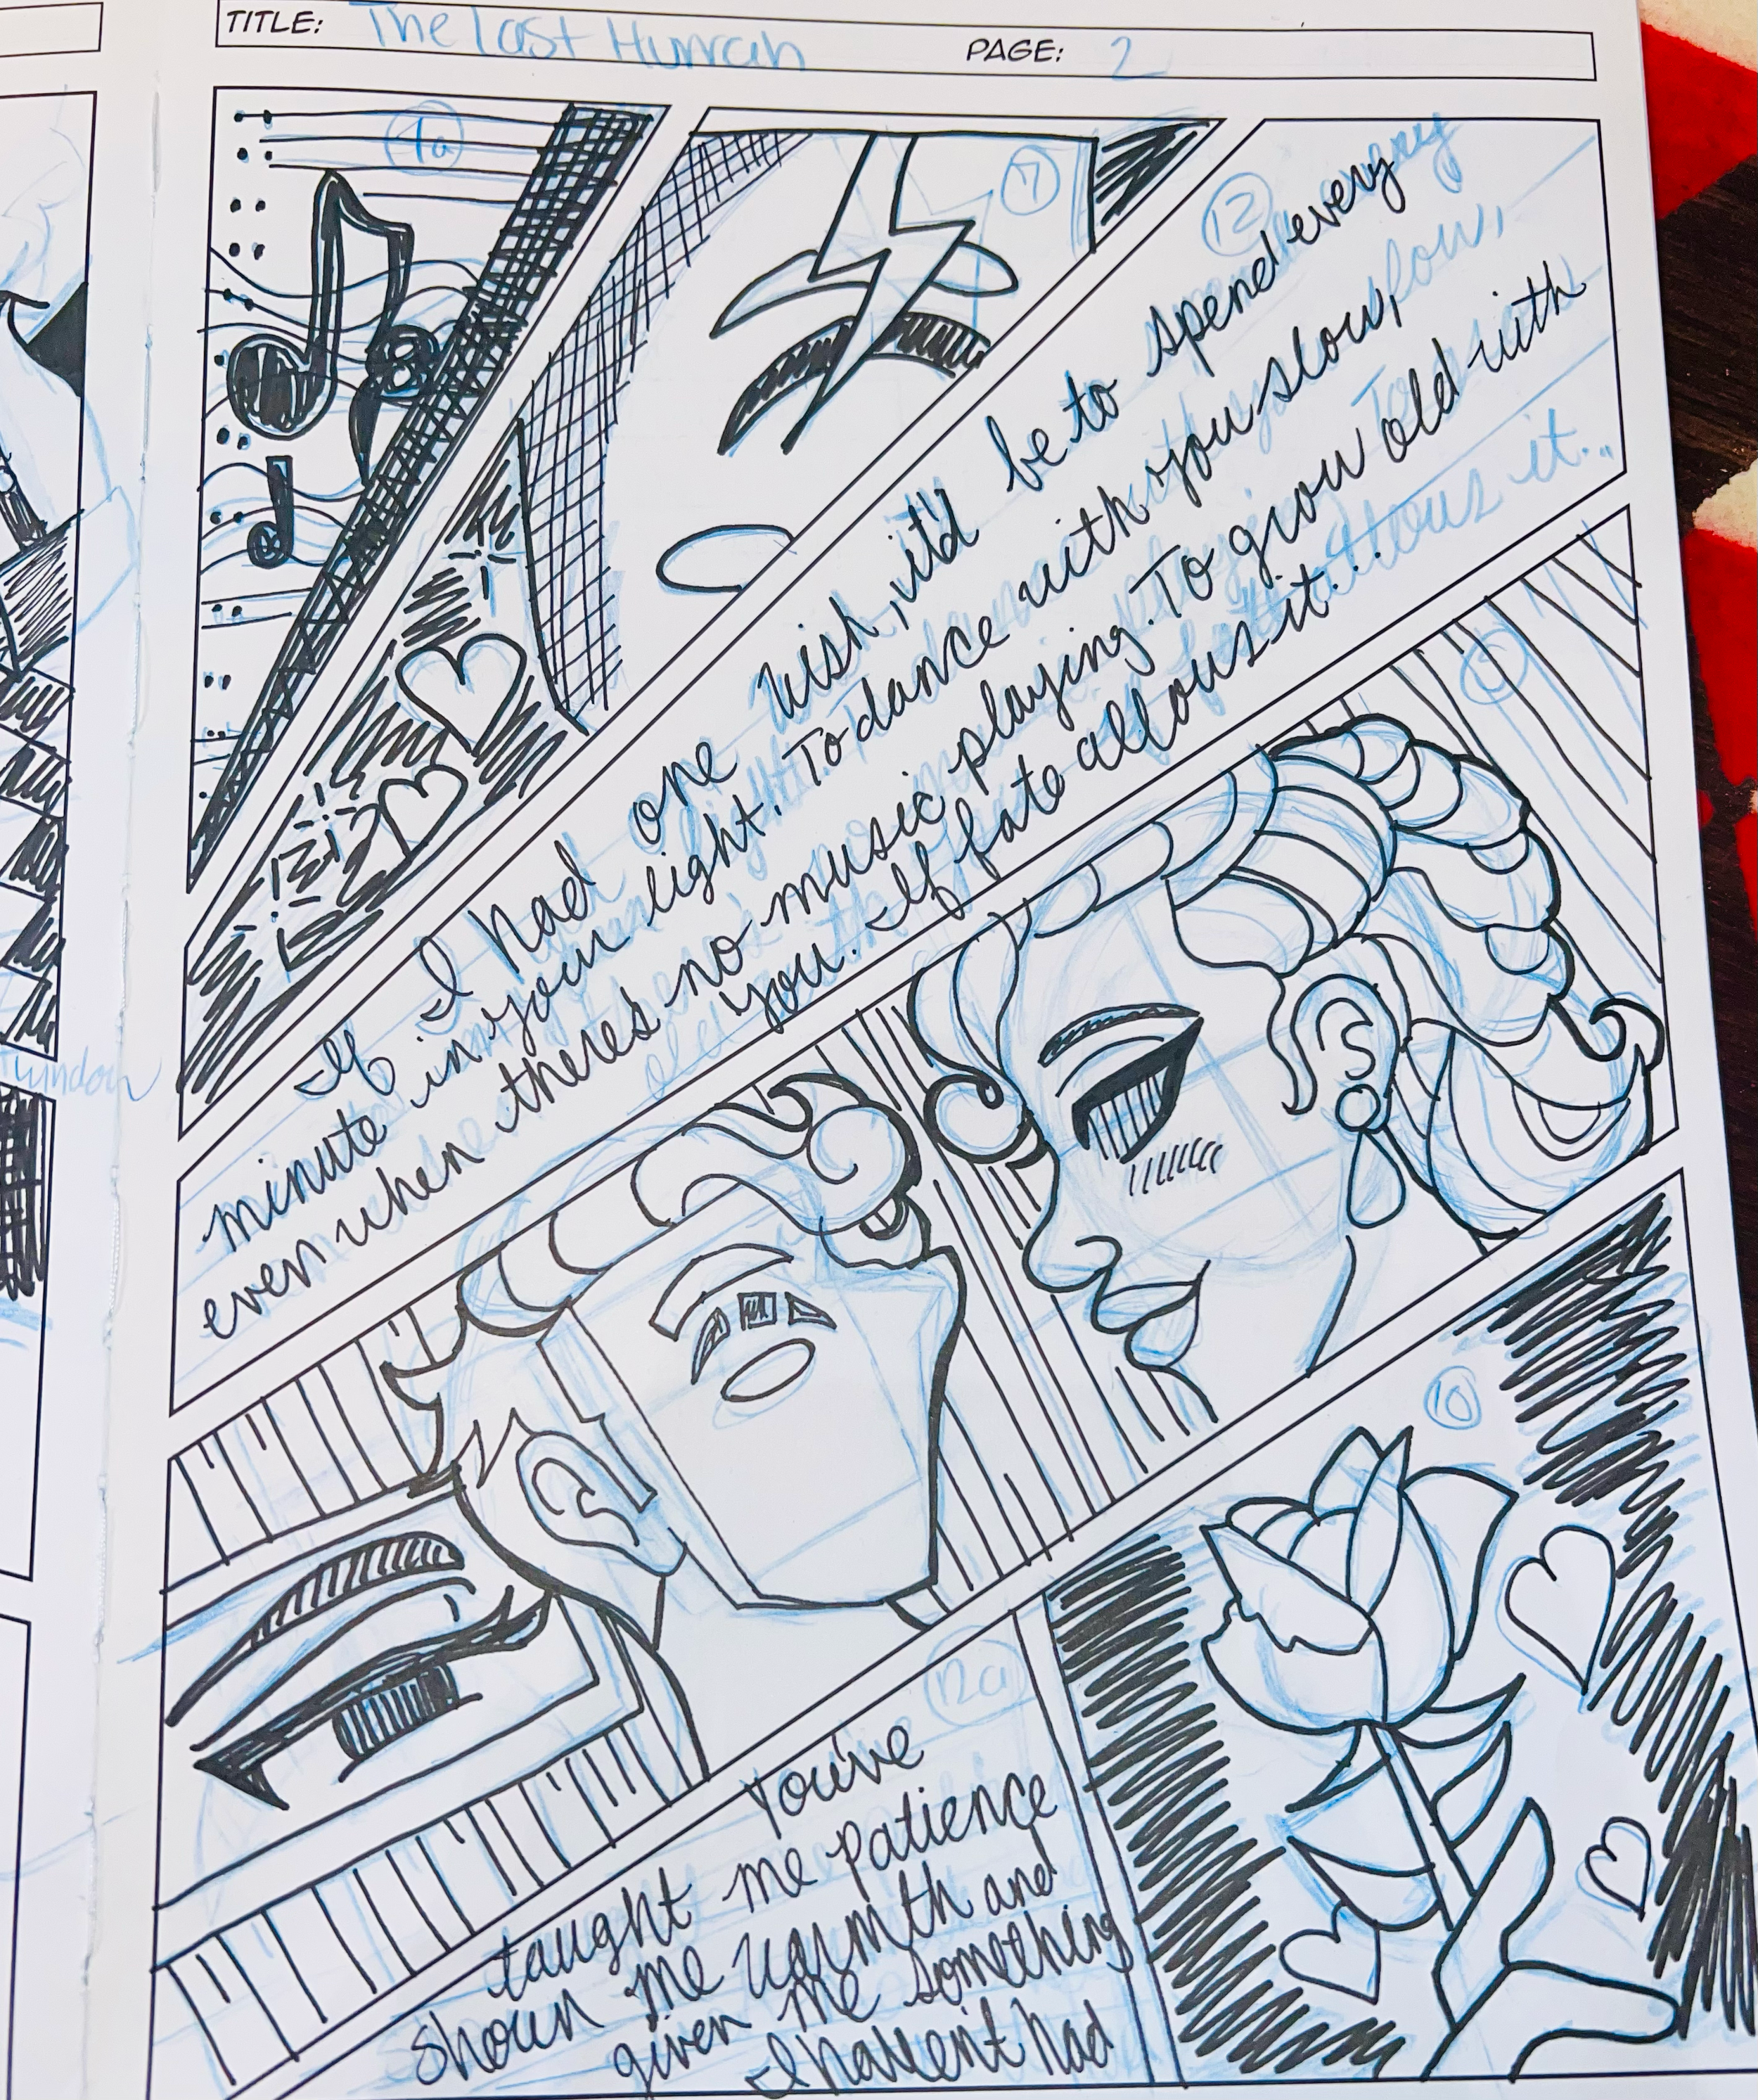 TITLE: The Last Human PAGE: 2
7a
7
12
If I had one wish, it'd be to spend every
minute in your light. To dance with you slow,
even when theres no music playing. To grow old with
you. If fate allows it...
10
12a
You've
taught me patience
shown me warmth and
given me something
I haven't had
window